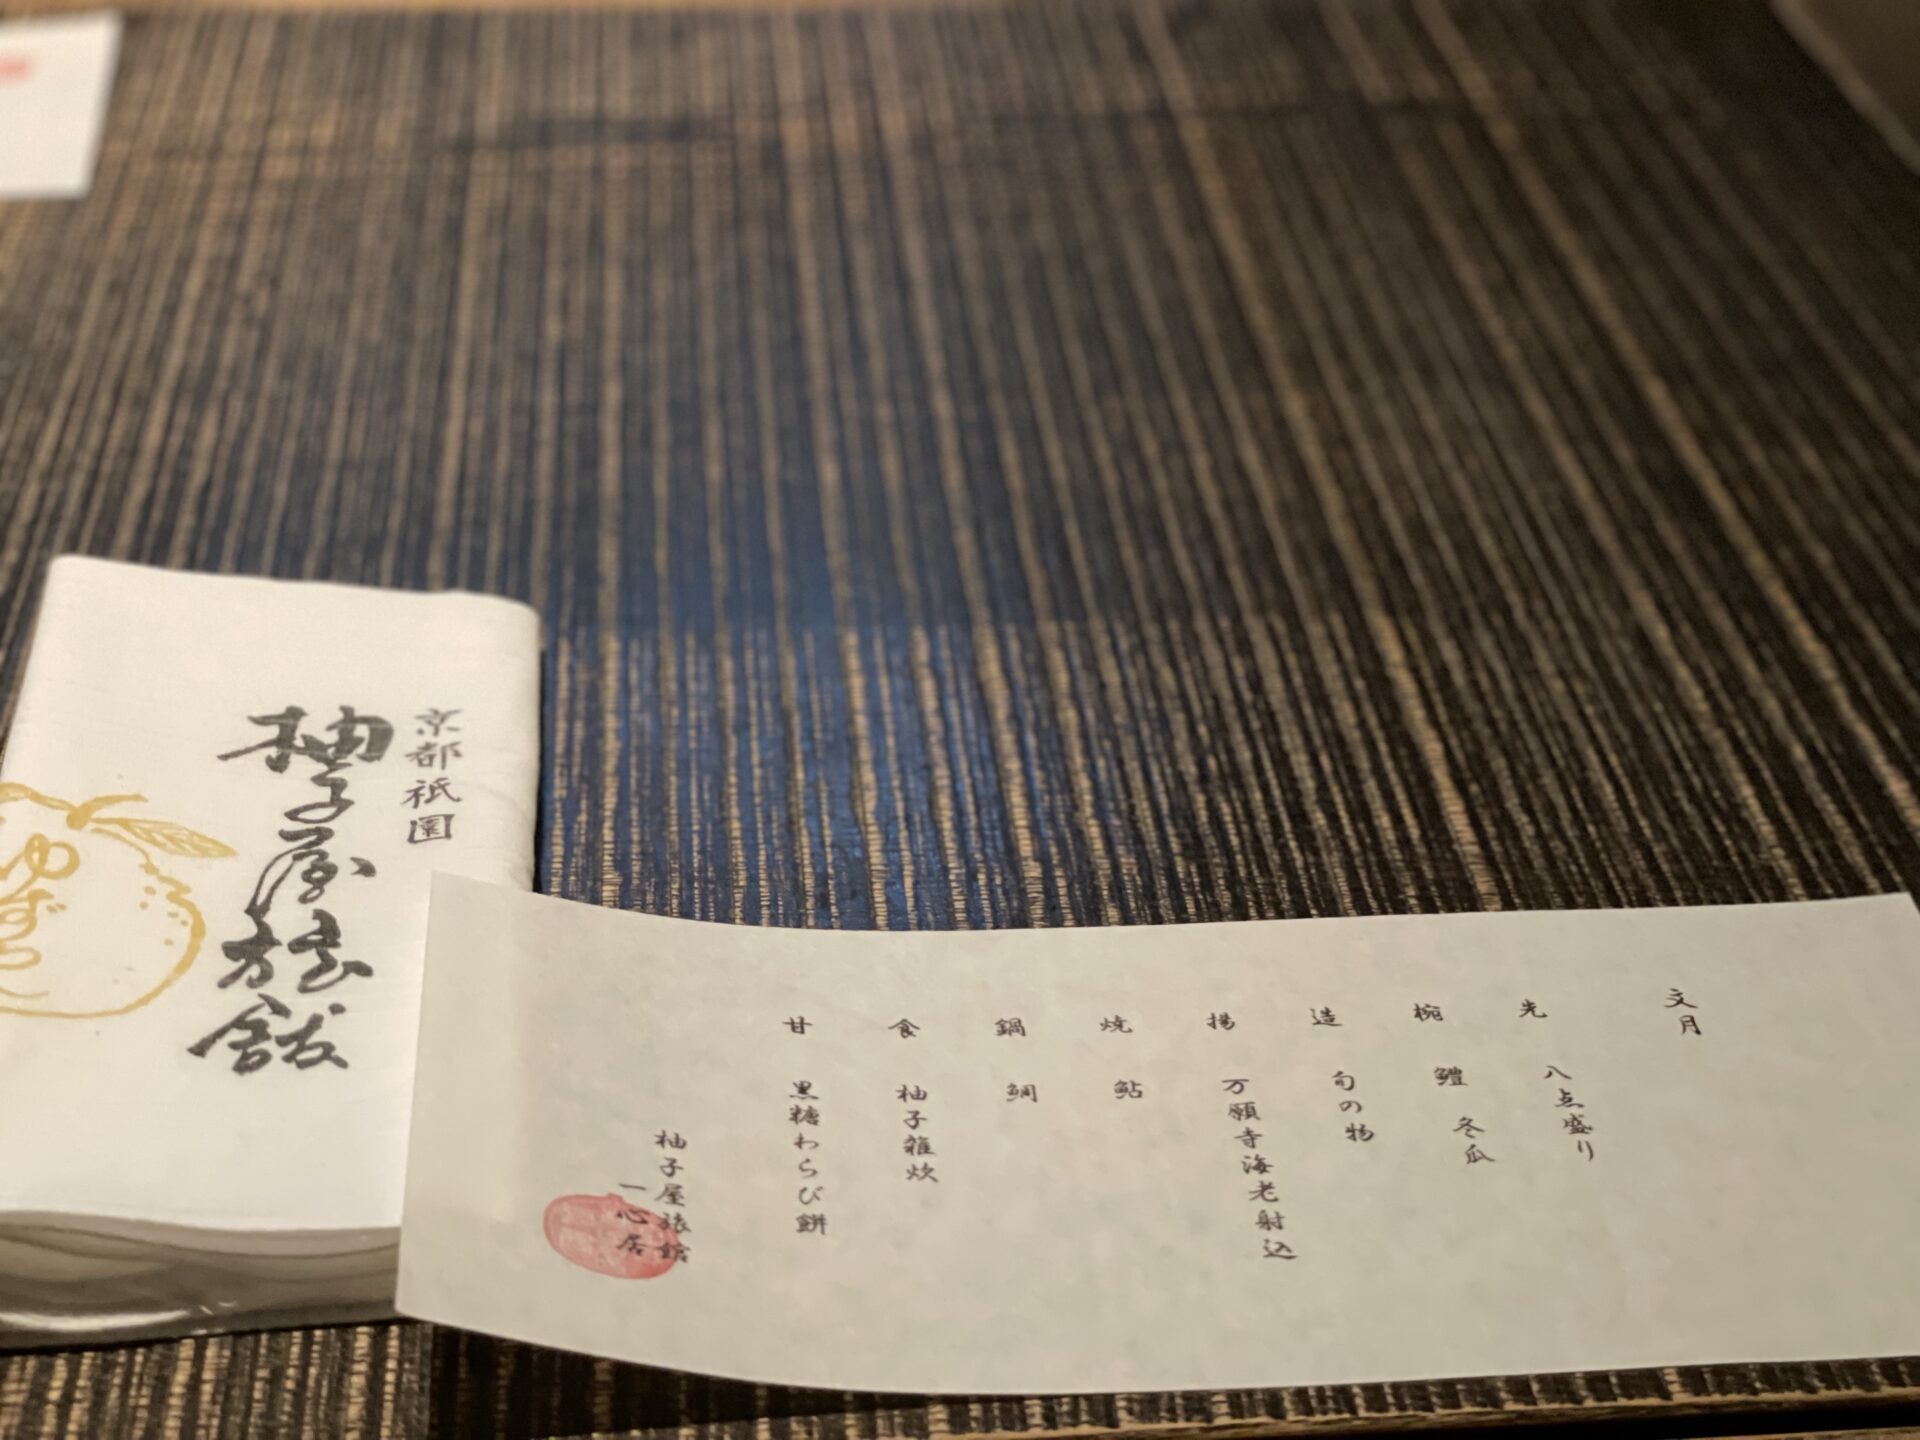 京都祇園
柚子屋旅館
ゆずや
文月
先 八点盛り
椀 鱧 冬瓜
造 旬の物
揚 万願寺海老射込
焼 鮎
鍋 鯛
食 柚子雑炊
甘 黒糖わらび餅
柚子屋旅館
一心居